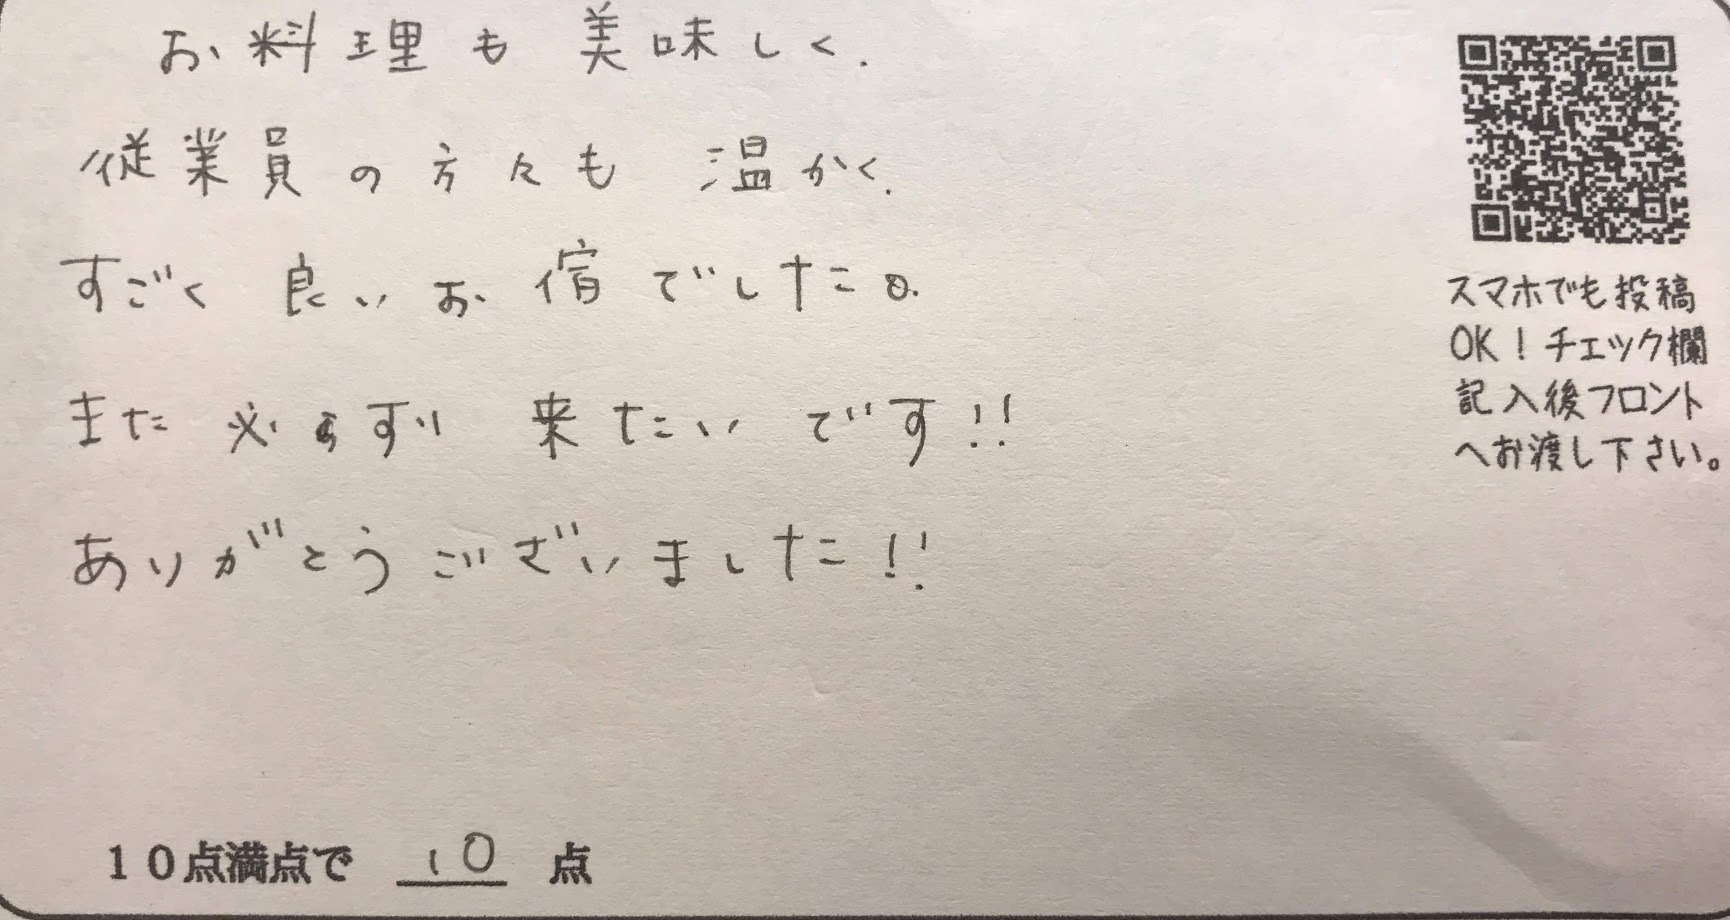 お料理も美味しく、
従業員の方々も温かく、
すごく良いお宿でした。
また必ず来たいです!!
ありがとうございました!!
スマホでも投稿
OK!チェック欄
記入後フロント
へお渡し下さい。
10点満点で 10 点